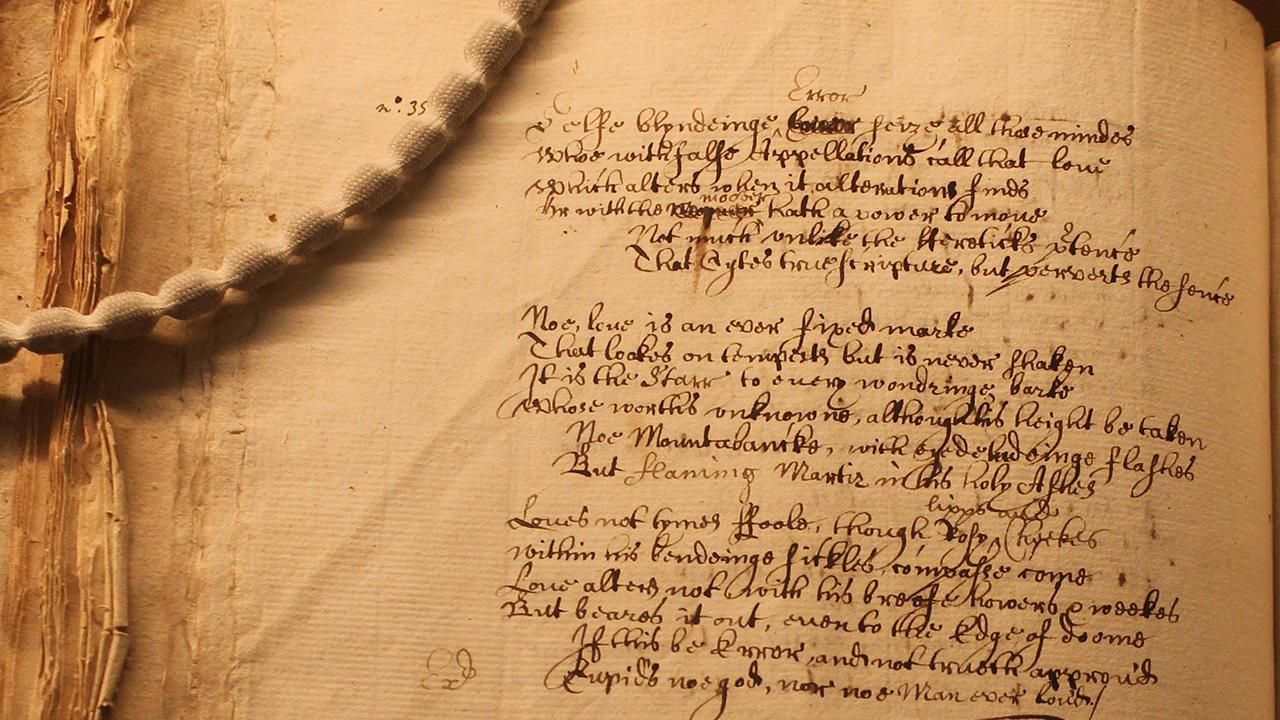 Error
n.º 35
Selfe blyndeinge, seize all those mindes
Whoe with false Appellations call that loue
Which alters when it alterations finds
moover
Or with the hath a power to moue
Not much vnlike the Hereticks p̱tence
That Cytes true scripture, but perverts the sence
Noe, loue is an ever fixed marke
That lookes on tempests but is never shaken
It is the Starr to euery wondringe barke
Whose worths vnknowne, although his height be taken
Noe Mountabancke, with eyedeludeinge flashes
But flaming Martir in his holy Ashes
lipps and
Loues not tymes ffoole, though Rosy Cheekes
within his bendeinge sickles compasse come
Loue alters not with his breefe howers & weekes
But beares it out, euen to the Edge of doome
If this be Error, and not trueth approu'd
Cupids noe god, nor noe Man ever lou'd./